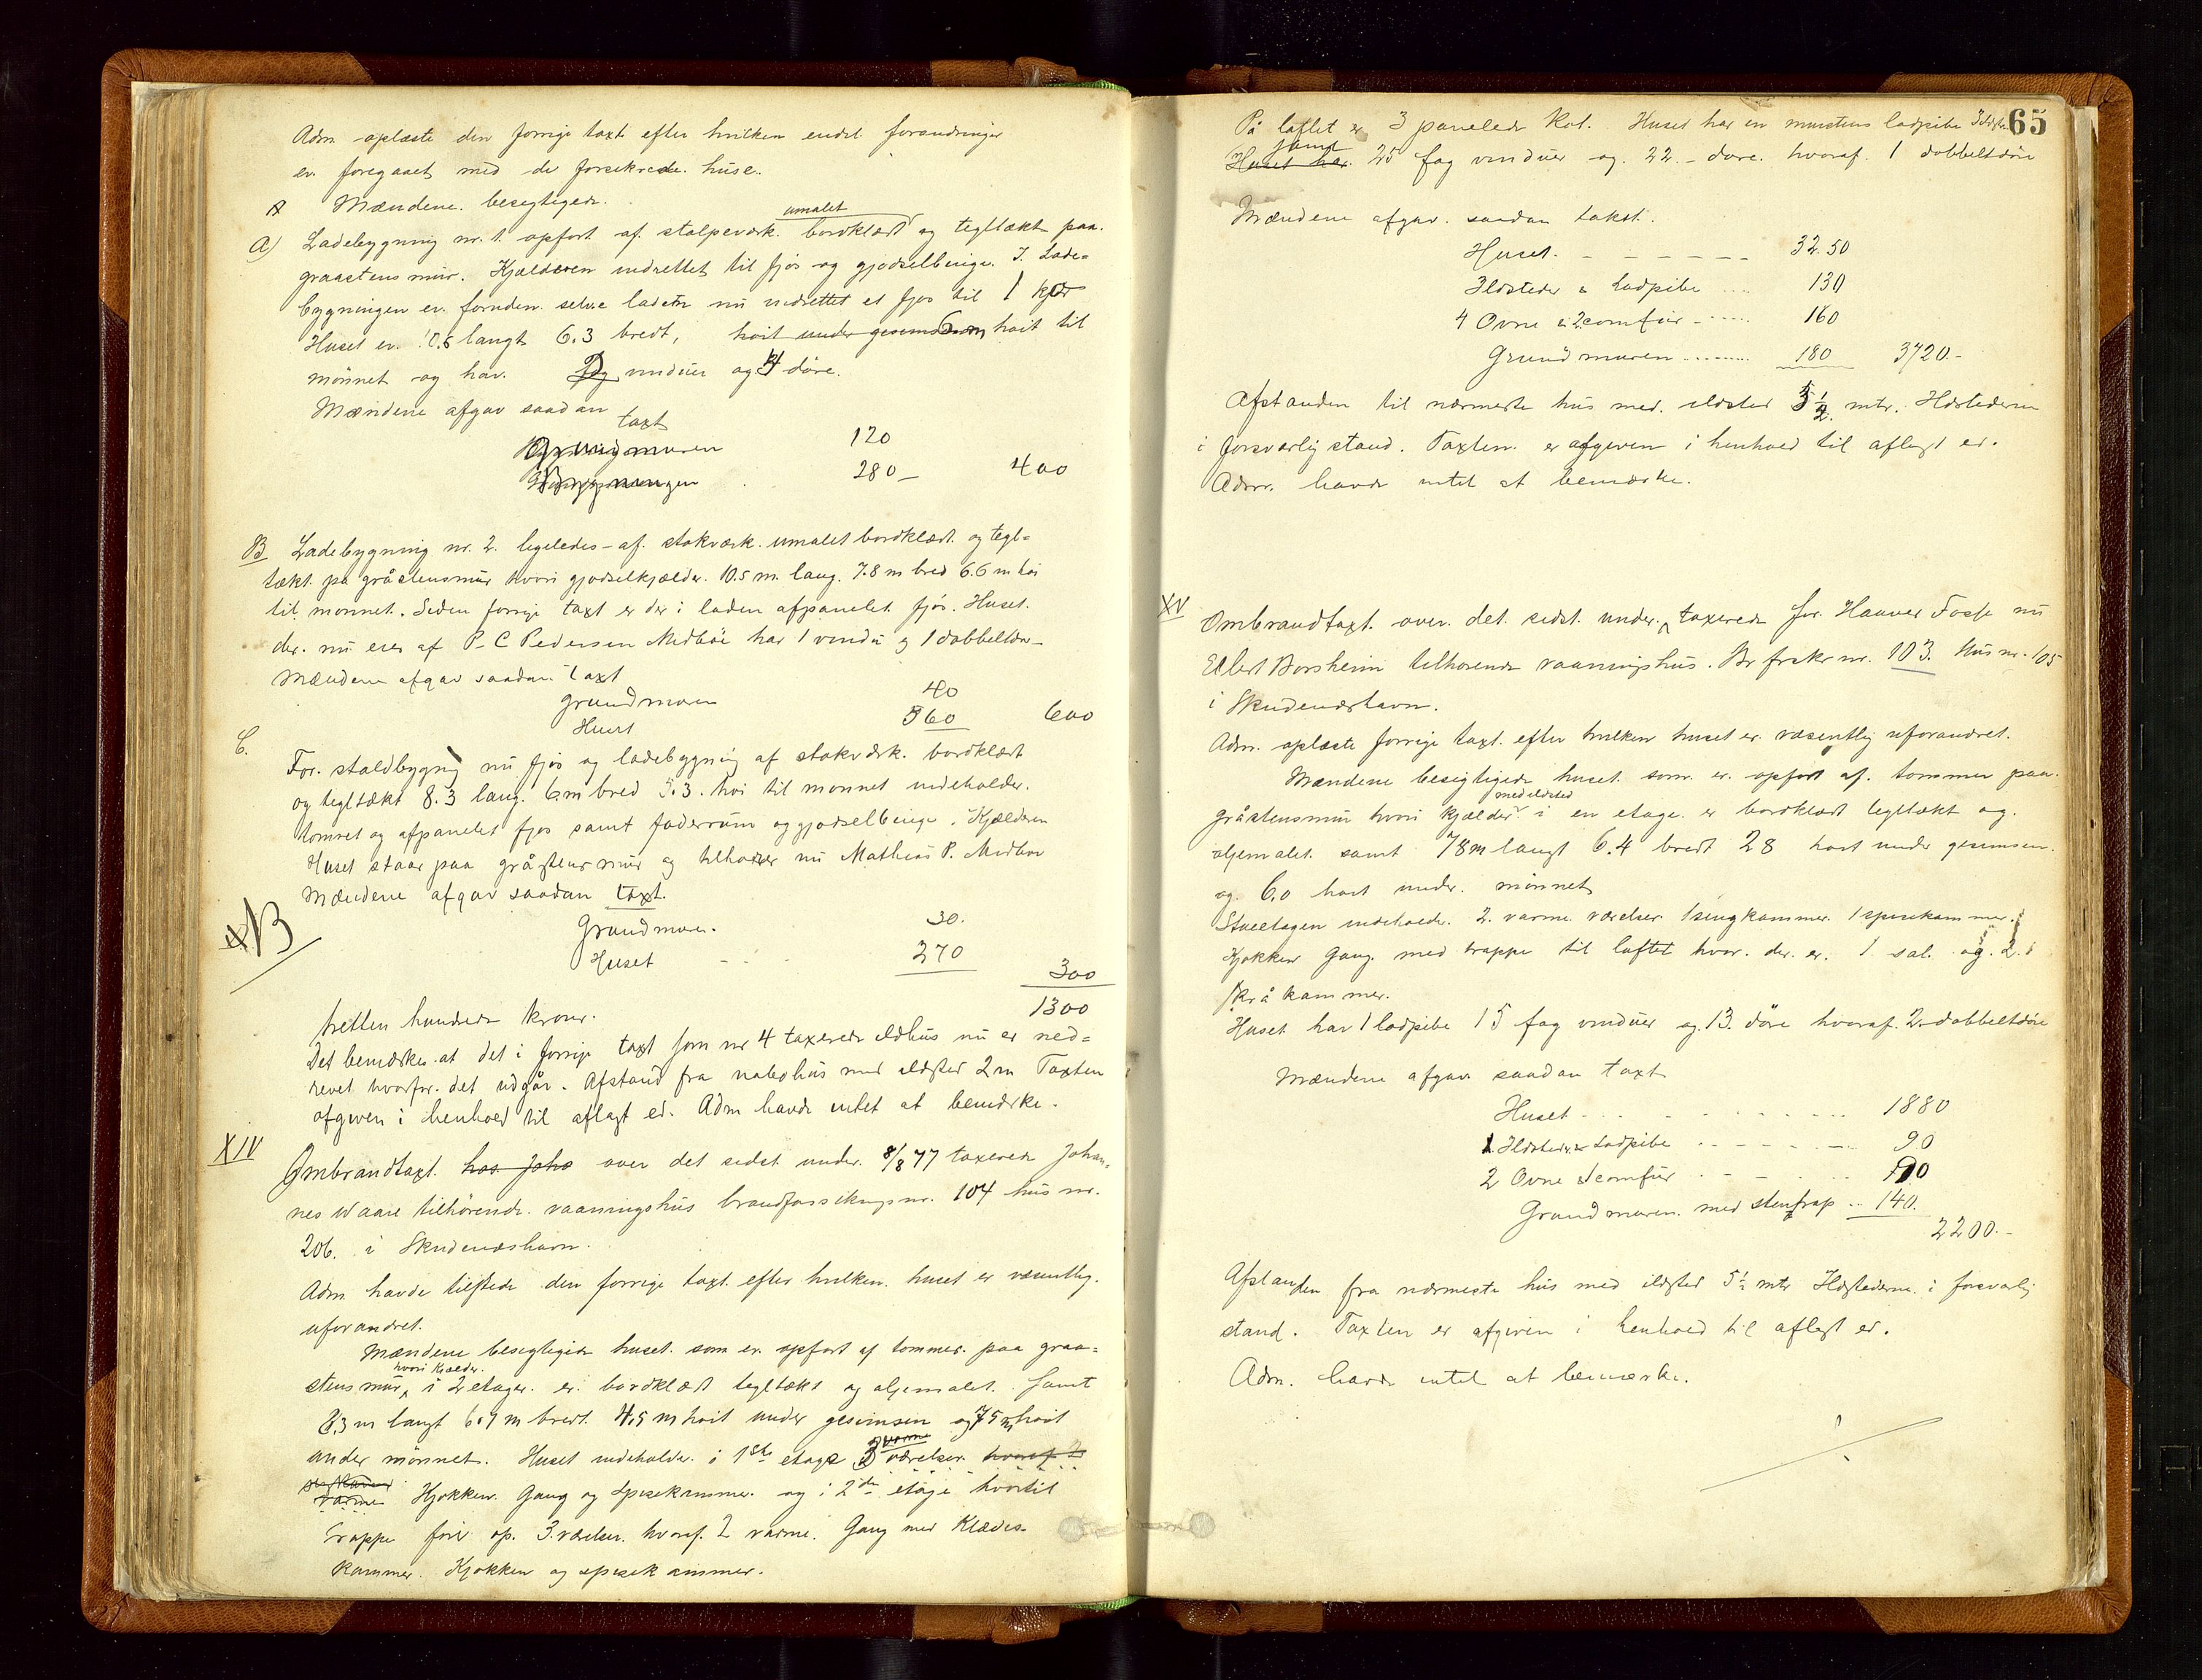 Adm. oplæste den forrige taxt efter hvilken endel forandringer
er foregaaet med de forsikrede huse.
Mændene besigtigede.
umalet
A) Ladebygning nr. 1. opført af stolpeværk bordklædt og tegltækt paa
graastensmur. Kjælderen indrettet til fjös og gjödselbinge. I Lade-
bygningen er foruden selve laden nu indrettet et fjös til 1 kjør
Huset er 10.5 langt 6.3 bredt, høit under gesimsen 6 m høit til
mönnet og har vinduer og 4 döre.
Mændene afgav saadan
taxt
Grundmuren 120
Bygningen 280 – 400
B Ladebygning nr. 2. ligeledes af stakværk umalet bordklædt og tegl-
tækt på gråstensmur hvori gjödselkjælder. 10.5 m. lang. 7.8 m bred 6.6 m höi
til mønnet. Siden forrige taxt er der i laden afpanelet fjös. Huset
der nu eies af P. C Pedersen Medböe har 1 vindu og 1 dobbeltdør
Mændene afgav saadan taxt
Grundmuren 40
Huset 560 600
C.
For. staldbygnig nu fjös og ladebygnig af stakværk bordklædt
og tegltækt 8.3 lang. 6 m bred 5.3. høi til mønnet indeholder
tømret og afpanelet fjøs samt foderrum og gjødselbinge i Kjælderen
Huset staar paa gråstensmur og tilhører nu Mathias P. Medböe
Mændene afgav saadan taxt.
Grundmuren. 30.
Huset 270
300
1300
tretten hundrede kroner.
Det bemærkes at det i forrige taxt som nr 4 taxerede ildhus nu er ned-
revet hvorfor det udgår. Afstand fra nabohus med ildsted 2 m Taxten
afgiven i henhold til aflagt ed. Adm havde intet at bemærke.
XIV Ombrandtaxt. hos Joha over det sidst under 8/8 77 taxerede Johan-
nes Waare tilhörende vaaningshus brandforsikringsnr. 104 hus nr.
206. i Skudeneshavn.
Adm. havde tilstede den forrige taxt efter hvilken huset er væsentlig
uforandret.
Mændene besigtigede huset som er opført af tømmer paa graa-
hvori kjælder.
stensmur, i 2 etager. er bordklædt tegltækt og oljemalet. Samt
8.3 m langt 6.7 m bredt 4.5 m høit under gesimsen og 7.5 m høit
varme
under mönnet. Huset indeholder i 1ste etage 2 værelser hvoraf 2
varme Kjökken. Gang og Spisekammer. og i 2den etage hvortil
trappe förer op. 3. værelser. hvoraf 2 varme. Gang med Klædes-
kammer. Kjøkken og spisekammer.
65
På loftet er 3 panelede Kot. Huset har en murstens ladpibe
samt
Huset har 25 fag vinduer og 22 – döre. hvoraf 1 dobbeltdør
Mændene afgav saadan takst.
Huset. 32.50
Ildsteder & Ladpibe 130
4 Ovne & 2 comfür 160
Grundmuren 180 3720.–
Afstanden til nærmeste hus med ildsted 5 1/2 mtr. Ildstederne
i forsvarlig stand. Taxten er afgiven i henhold til aflagt ed.
Adm. havde intet at bemærke.
XV Ombrandtaxt over det sidst under taxerede for Haaver Fosse nu
Eilert Borsheim tilhørende vaaningshus. Br frskr nr. 103. Hus nr. 105
i Skudeneshavn.
Adm. oplæste forrige taxt efter hvilken huset er væsentlig uforandret.
Mændene besigtigede huset som er opført af tømmer paa
med ildsted
gråstensmur hvori kjælder i en etage er bordklædt tegltækt og
oljemalet samt 7.8 m langt 6.4 bredt 2.8 høit under gesimsen
og 6.0 høit under mönnet.
Stueetagen indeholder 2 varme værelser 1 sengkammer. 1 spisekammer.
Kjøkken Gang med trappe til loftet hvor der er 1 sal og 2
skråkammer.
Huset har 1 ladpibe 15 fag vinduer og 13. döre hvoraf 2 dobbeltdöre
Mændene afgav saadan taxt
Huset 1880
1 Ildsted & Ladpibe 90
2 Ovne & comfür 90
Grundmuren med stentrap 140.
2200.–
Afstanden fra nærmeste hus med ildsted 5 1/2 mtr Ildstederne i forsvarlig
stand. Taxten er afgiven i henhold til aflagt ed.
Adm. havde intet at bemærke.